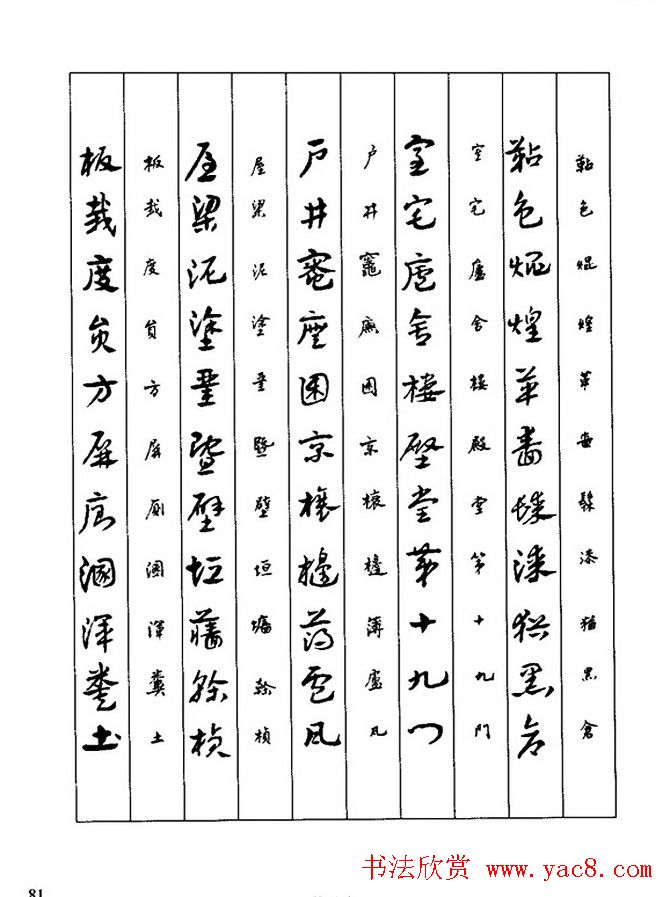 色焜煌革髹漆猶黑倉
色焜煌革髹漆猶黑倉
室宅廬舍樓殿堂第十九門
室宅廬舍樓殿堂第十九門
戶井竈廡囷京榱薄廬瓦
戶井竈廡囷京榱薄廬瓦
屋梁泥塗堊壁垣榦楨
屋梁泥塗堊壁垣榦楨
板栽度員方屏廁溷渾糞土
板栽度員方屏廁溷渾糞土
81
书法欣赏 www.yac8.com